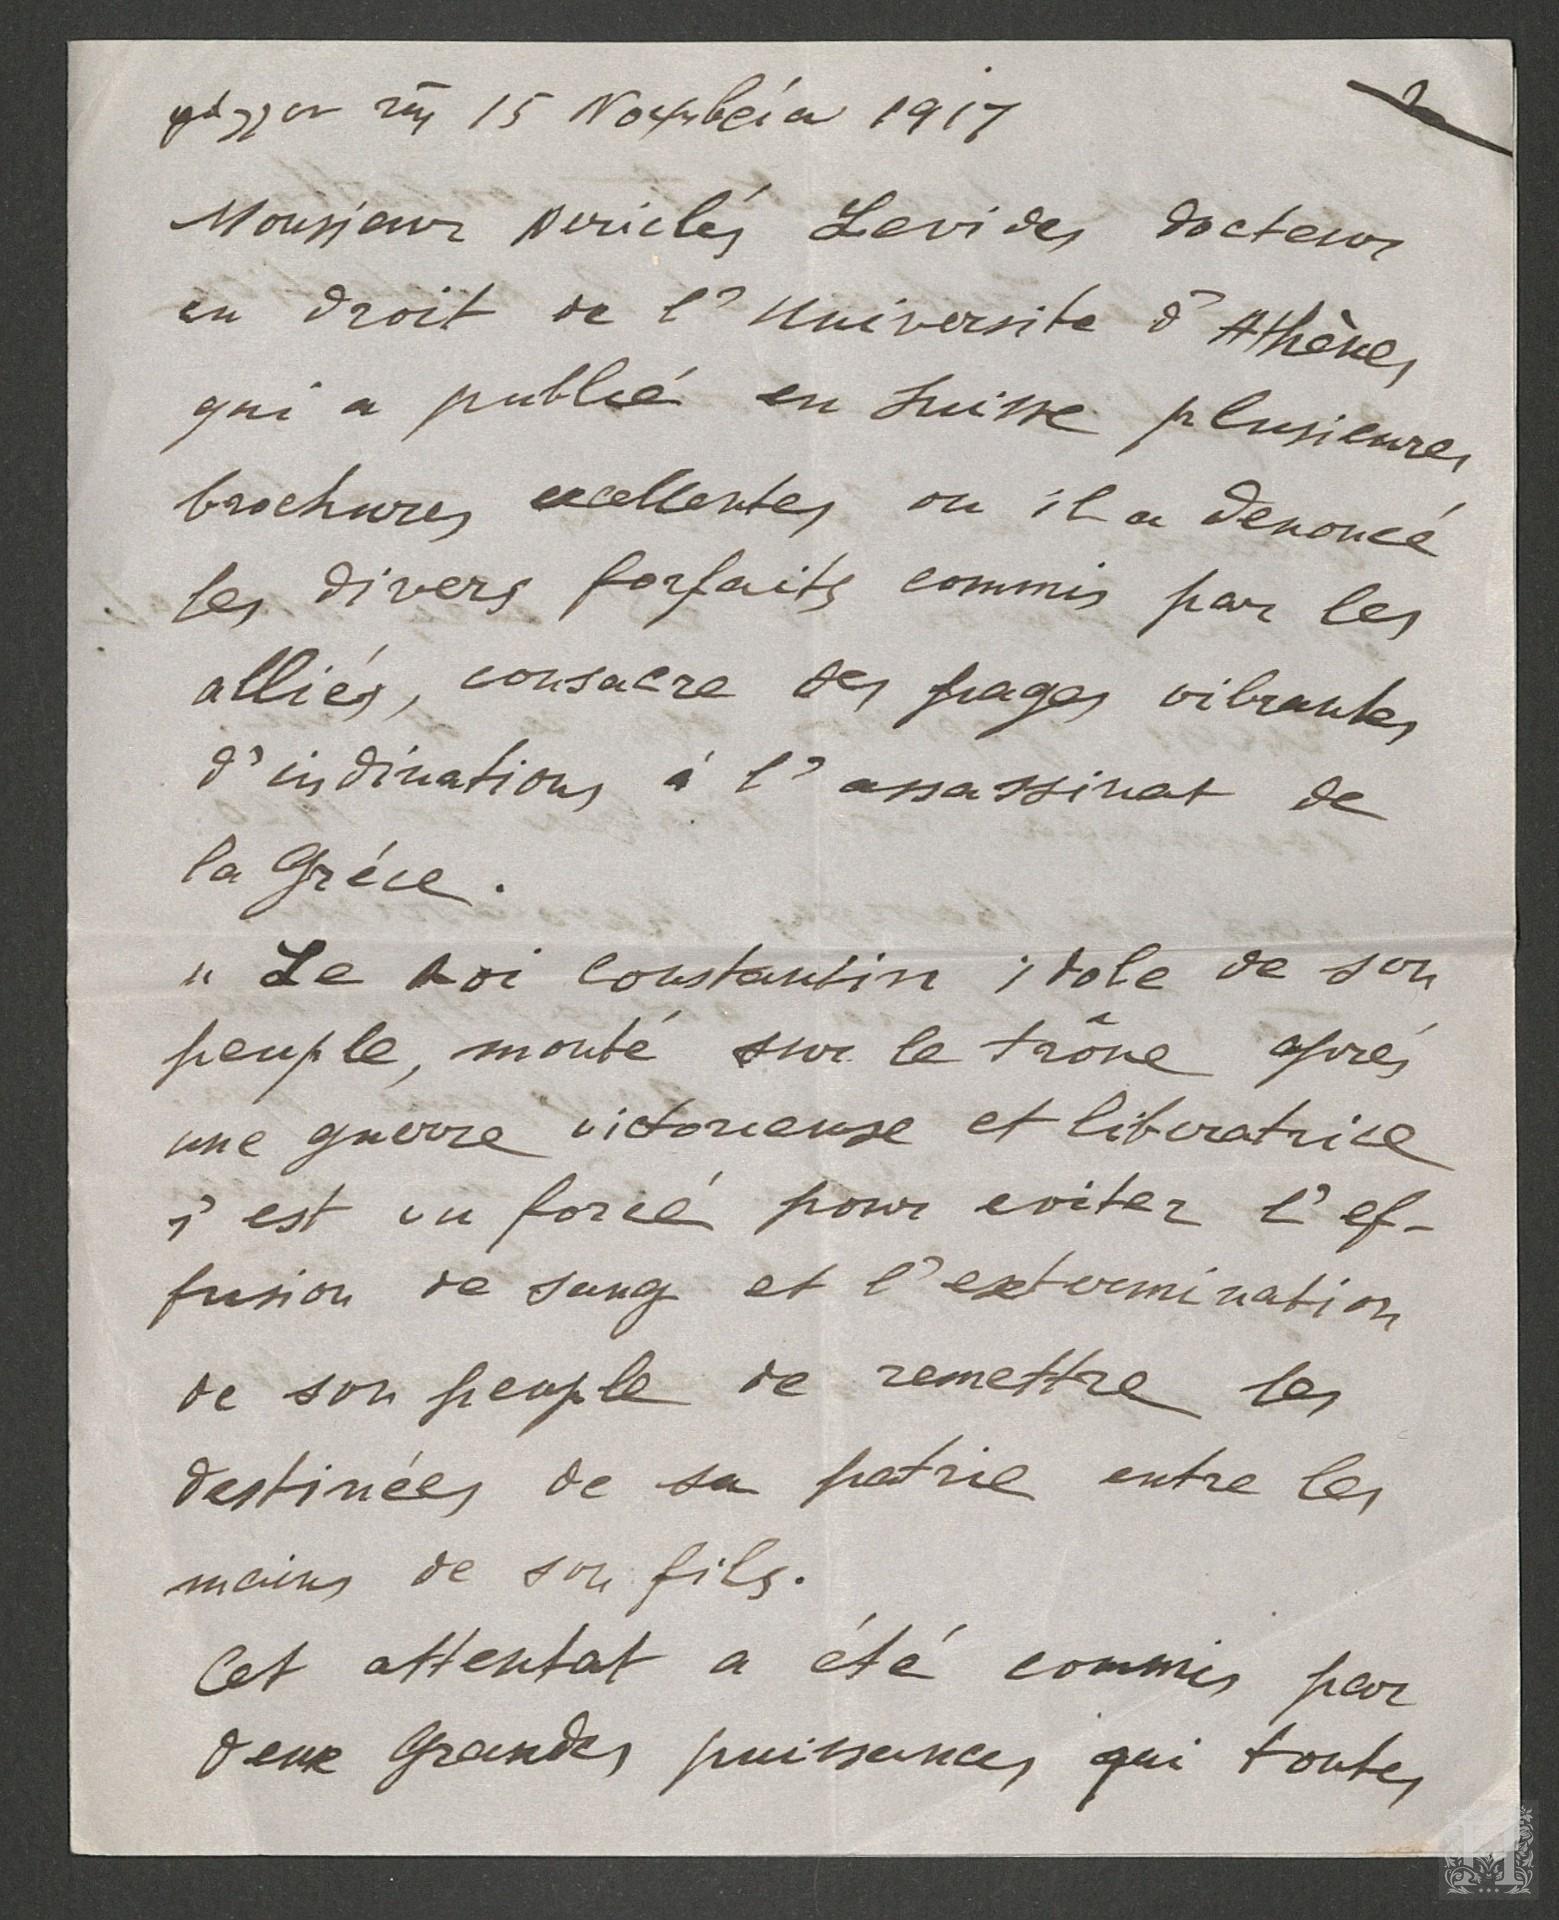 φύλλον τῆς 15 Νοεμβρίου 1917
2
Monsieur Periclés Levides docteur
en droit de l'Université d'Athènes
qui a publié en Suisse plusieures
brochures excellentes ou il a denoncé
les divers forfaits commis par les
alliés, consacre des pages vibrantes
d'indinations á l'assassinat de
la Gréce.
" Le Roi Constantin idole de son
peuple, monté sur le trône aprés
une guerre victorieuse et liberatrice
s'est vu forcé pour eviter l'ef-
fusion de sang et l'extermination
de son peuple de remettre les
destinées de sa patrie entre les
mains de son fils.
Cet attentat a été commis par
deux Grandes puissances qui toutes